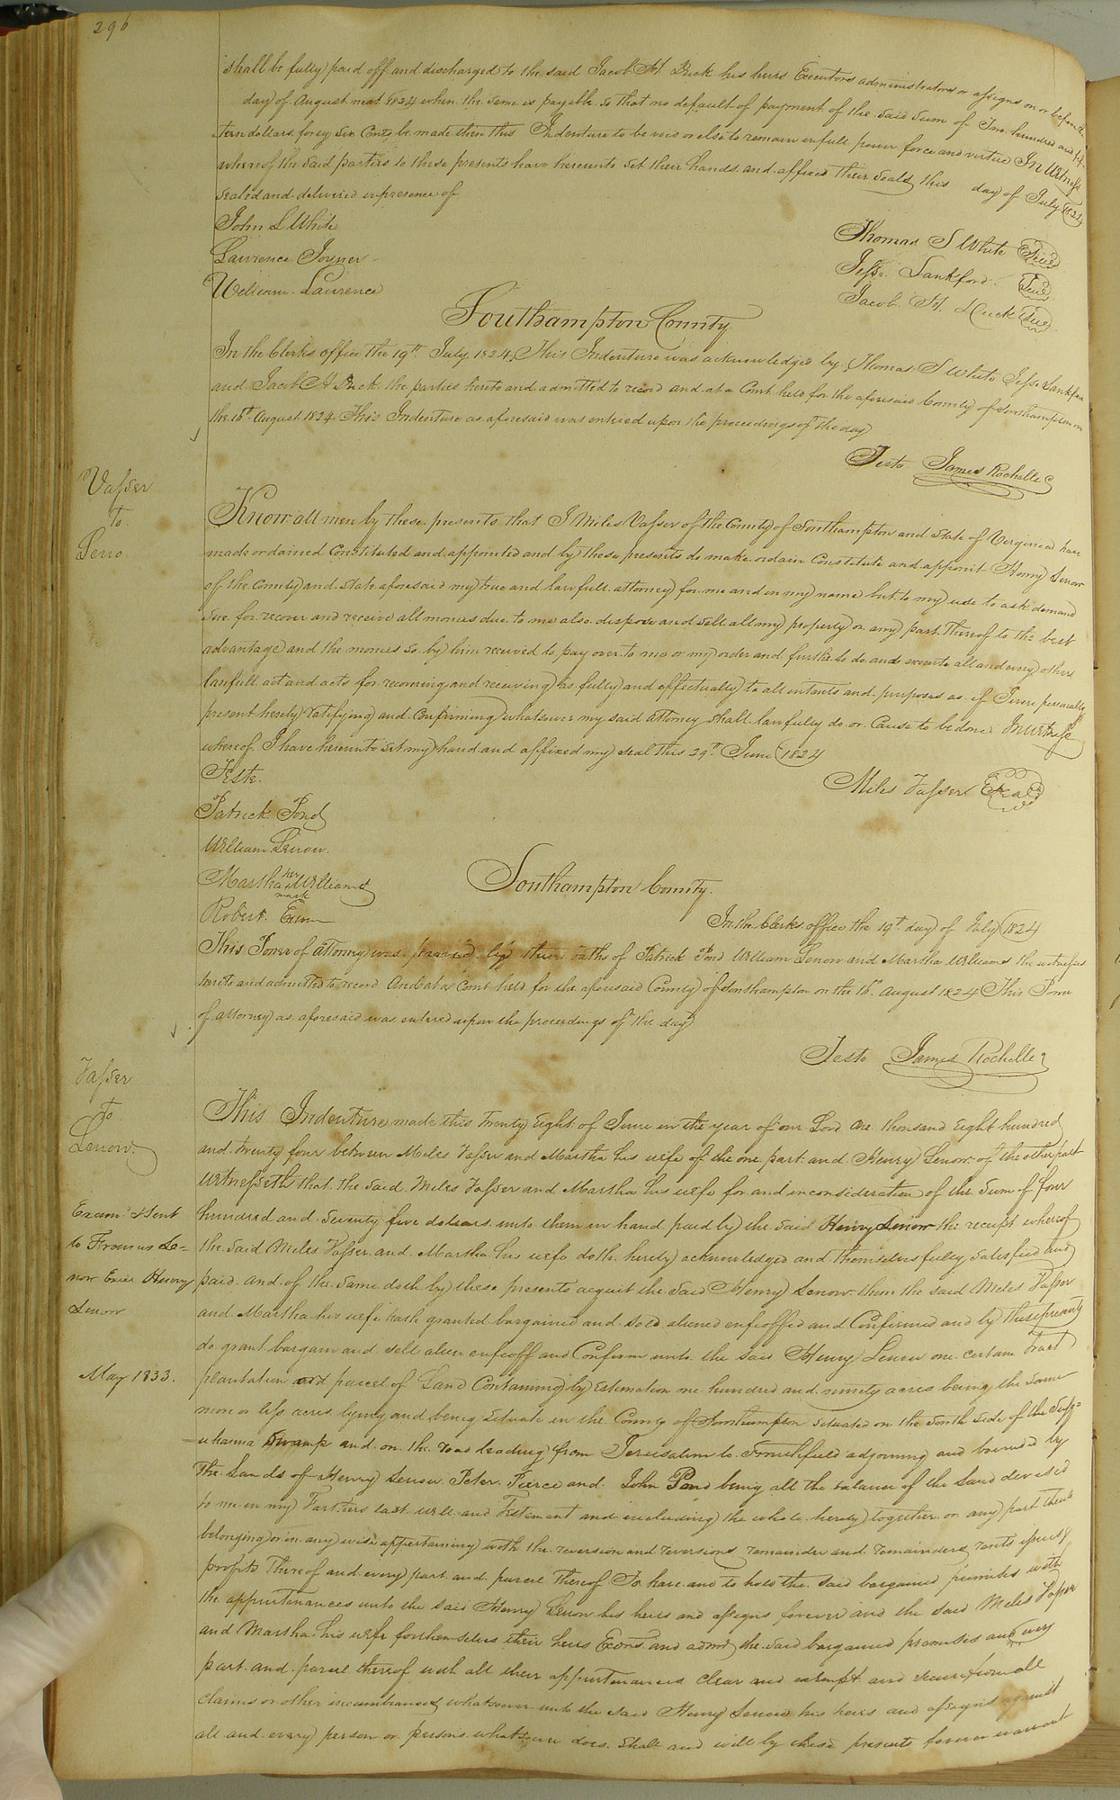 296
shall be fully paid off and discharged to the said Jacob H. Duck his heirs Executors administrators or assigns on or before the
day of August next 1824 when the same is payable so that no default of payment of the said Sum of Two hundred and
teen dollars forty Six Cents be made then this Indenture to be void or else to remain in full power force and virtue In Witness
whereof the said parties to these presents have hereunto set their hands and affixed their Seals this day of July 1824
Seal'd and delivered in presence of
John L White
Thomas S White Seal
Lawrence Joyner
Jesse Lankford Seal
William Laurence
Jacob H. Duck Seal
Southampton County
In the Clerks office the 19th July 1824. This Indenture was acknowledged by Thomas S White Jesse Lankford
and Jacob H Duck the parties hereto and admitted to record and at a Court held for the aforesaid County of Southampton on
the 16th August 1824. This Indenture as aforesaid was entered upon the proceedings of the day
Teste James Rochelle
Vasser
to
Leno
Know all men by these presents that I Miles Vasser of the County of Southampton and State of Verginea have
made ordained Constituted and appointed and by these presents do make ordain Constitute and appoint Henry Lenow
of the County and State aforesaid my true and lawfull attorney for me and in my name but to my use to ask demand
Sue for recover and receive all monies due to me also dispose and sell all my property or any part thereof to the best
advantage and the monies so by him received to pay over to me or my order and further to do and execute all and every other
lawfull act and acts for recovering and receiving as fully and effectually to all intents and purposes as if I were personally
present hereby ratifying and Confirming whatsoever my said attorney shall lawfully do or Cause to be done In witness
whereof I have hereunto set my hand and affixed my seal this 29th June 1824
Teste
Miles Vasser Seal
Patrick Pond
William Lenow
Martha her mark Williams
Robert Exum
Southampton County.
In the Clerks office the 19th day of July 1824
This Power of attorney was proved by the oaths of Patrick Pond William Lenow and Martha Williams the witnesses
hereto and admitted to record And at a Court held for the aforesaid County of Southampton on the 16th August 1824 This Power
of attorney as aforesaid was entered upon the proceedings of the day
Teste James Rochelle
Vasser
to
Lenow
Exam'd & Sent
to Frances Le=
now Exex Henry
Lenow
May 1833.
This Indenture made this Twenty Eight of June in the year of our Lord one thousand Eight hundred
and twenty four between Miles Vasser and Martha his wife of the one part and Henry Lenow of the other part
witnesseth that the said Miles Vasser and Martha his wife for and in consideration of the Sum of four
hundred and Seventy five dollars unto them in hand paid by the said Henry Lenow the receipt whereof
the said Miles Vasser and Martha his wife doth hereby acknowledged and themselves fully satisfied and
paid and of the same doth by these presents acquit the said Henry Lenow them the said Miles Vasser
and Martha his wife hath granted bargained and sold aliened enfeoffed and Confirmed and by these presents
do grant bargain and sell alien enfeoff and Confirm unto the said Henry Lenow one certain tract
plantation and parcel of Land Containing by Estimation one hundred and ninety acres being the same
more or less acres lying and being situate in the County of Southampton situated on the South side of the
Swamp and on the road leading from Jerusalem to adjoining and bounded by
the Lands of Henry Lenow Peter Pierce and John Pond being all the balance of the Land devised
to me in my Farthers last will and Testement and including the whole hereby together or any part thereto
belonging or in any wise appertaining with the reversion and reversions remainder and remainders rents issues
profits thereof and every part and parcel thereof To have and to hold the said bargained premises with
the appurtenances unto the said Henry Lenow his heirs and assigns forever and the said Miles Vasser
and Martha his wife for themselves their heirs Exors and admrs the said bargained premises and every
part and parcel thereof with all their appurtenances clear and exempt and from all
claims or other incumbrances whatsoever unto the said Henry Lenow his heirs and assigns against
all and every person or persons whatsoever does Shall and will by these presents forever warrant